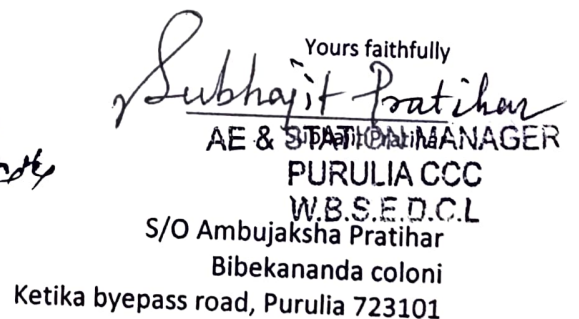 Yours faithfully
Subhajit Pratihar
Subhajit Pratihar
AE & STATION MANAGER
PURULIA CCC
W.B.S.E.D.C.L
S/O Ambujaksha Pratihar
Bibekananda coloni
Ketika byepass road, Purulia 723101